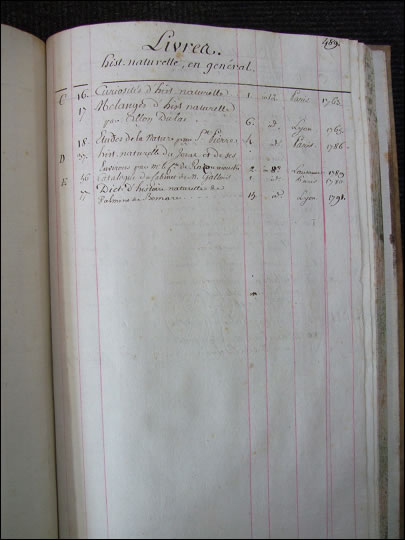 489.
Livres.
hist. naturelle, en général.
C 16. Curiosités d'hist. naturelle 1. Paris 1763.
17 Mélanges d'hist. naturelle
par Allon Dulac 6. id. Lyon 1765
18. Etudes de la Nature par St. Pierre id. Paris 1786.
D hist. naturelle du Jorat et de ses
Environs par M. le Cte. de Razoumowski 2 in 8° Lausanne 1789
E Catalogue du cabinet de M. Paris
Dict. d'histoire naturelle de
Valmont de Bomare 15 id. Lyon 1791.